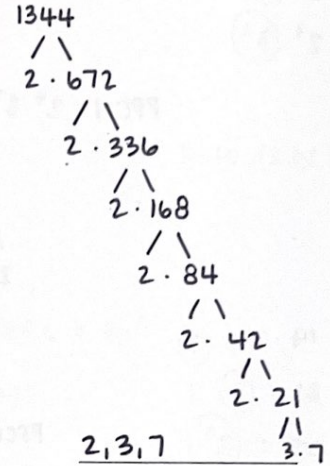 1344
2 · 672
2 · 336
2 · 168
2 · 84
2 · 42
2 · 21
3 · 7
2, 3, 7